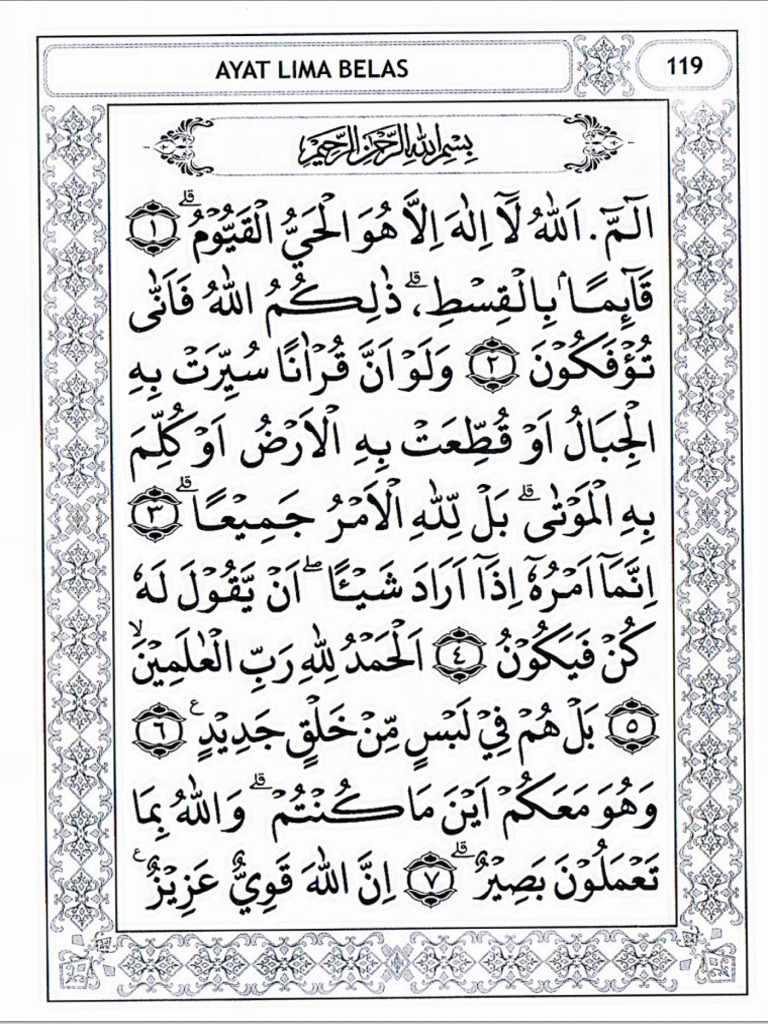 AYAT LIMA BELAS
119
بِسْمِ اللهِ الرَّحْمٰنِ الرَّحِيْمِ
الٓـمّٓ. اَللهُ لَآ اِلٰهَ اِلَّا هُوَ الْحَيُّ الْقَيُّوْمُ ۗ ﴿١﴾
قَآئِمًا ۢ بِالْقِسْطِ ۗ، ذٰلِكُمُ اللهُ فَاَنّٰى
تُؤْفَكُوْنَ ﴿٢﴾ وَلَوْ اَنَّ قُرْاٰنًا سُيِّرَتْ بِهِ
الْجِبَالُ اَوْ قُطِّعَتْ بِهِ الْاَرْضُ اَوْ كُلِّمَ
بِهِ الْمَوْتٰى ۗ بَلْ لِّلّٰهِ الْاَمْرُ جَمِيْعًا ۗ ﴿٣﴾
اِنَّمَآ اَمْرُهٗٓ اِذَآ اَرَادَ شَيْـًٔا ۖ اَنْ يَّقُوْلَ لَهٗ
كُنْ فَيَكُوْنُ ﴿٤﴾ اَلْحَمْدُ لِلّٰهِ رَبِّ الْعٰلَمِيْنَ ۙ
﴿٥﴾ بَلْ هُمْ فِيْ لَبْسٍ مِّنْ خَلْقٍ جَدِيْدٍ ع ﴿٦﴾
وَهُوَ مَعَكُمْ اَيْنَ مَا كُنْتُمْ ۗ وَاللهُ بِمَا
تَعْمَلُوْنَ بَصِيْرٌ ۗ ﴿٧﴾ اِنَّ اللهَ قَوِيٌّ عَزِيْزٌ ع